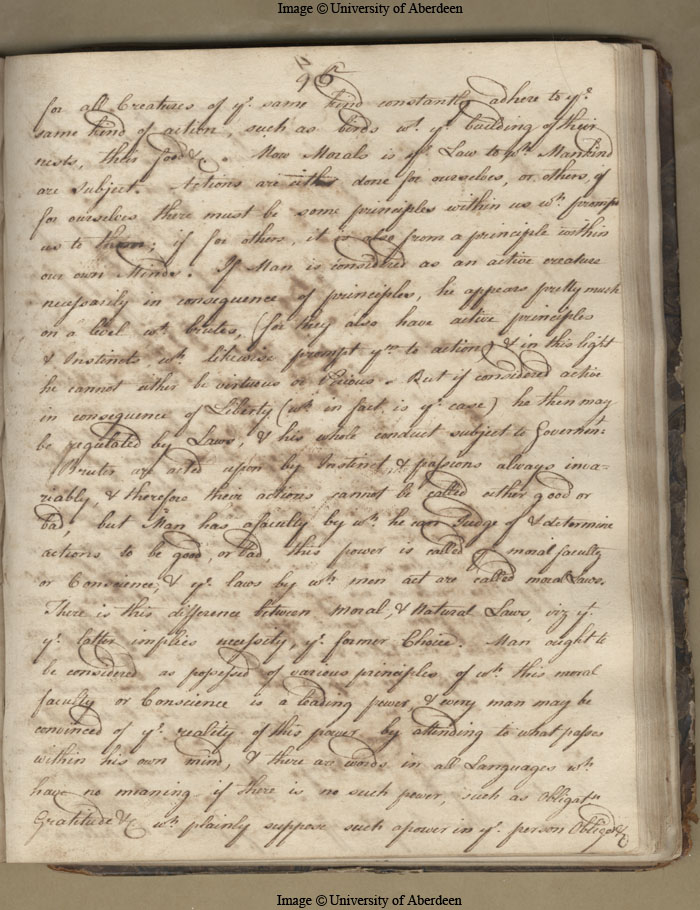 Image © University of Aberdeen
96
for all Creatures of yᵉ same kind constantly adhere to yᵉ
same kind of action, such as birds wᵗ yᵉ building of their
nests, their food &c. Now Morals is yᵉ Law to wʰ Mankind
are subject. Actions are either done for ourselves, or others, if
for ourselves there must be some principles within us wʰ promp
us to them; if for others, it is also from a principle within
our own Minds. If Man is considered as an active creature
necessarily in consequence of principles, he appears pretty much
on a level wᵗ brutes, (for they also have active principles
& Instincts wʰ likewise prompt yᵐ to action) & in this light
he cannot either be virtuous or Vicious. But if considered active
in consequence of Liberty (wʰ in fact is yᵉ case) he then may
be regulated by Laws, & his whole conduct subject to Governmen:
Brutes are acted upon by Instinct, & passions always inva-
riably, & therefore their actions cannot be called either good or
bad, but Man has a faculty by wʰ he can Judge of & determine
actions to be good, or bad, this power is called yᵉ moral faculty
or Conscience, & yᵉ laws by wʰ men act are called moral Laws.
There is this difference between moral, & Natural Laws, viz yᵗ
yᵉ latter implies necessity, yᵉ former Choice. Man ought to
be considered as possessed of various principles of wʰ this moral
faculty or Conscience is a leading power, & every man may be
convinced of yᵉ reality of this power by attending to what passes
within his own mind, & there are words in all Languages wʰ
have no meaning if there is no such power, such as Obligatⁿ
Gratitude &c wʰ plainly suppose such a power in yᵉ person Obliged &c
Image © University of Aberdeen